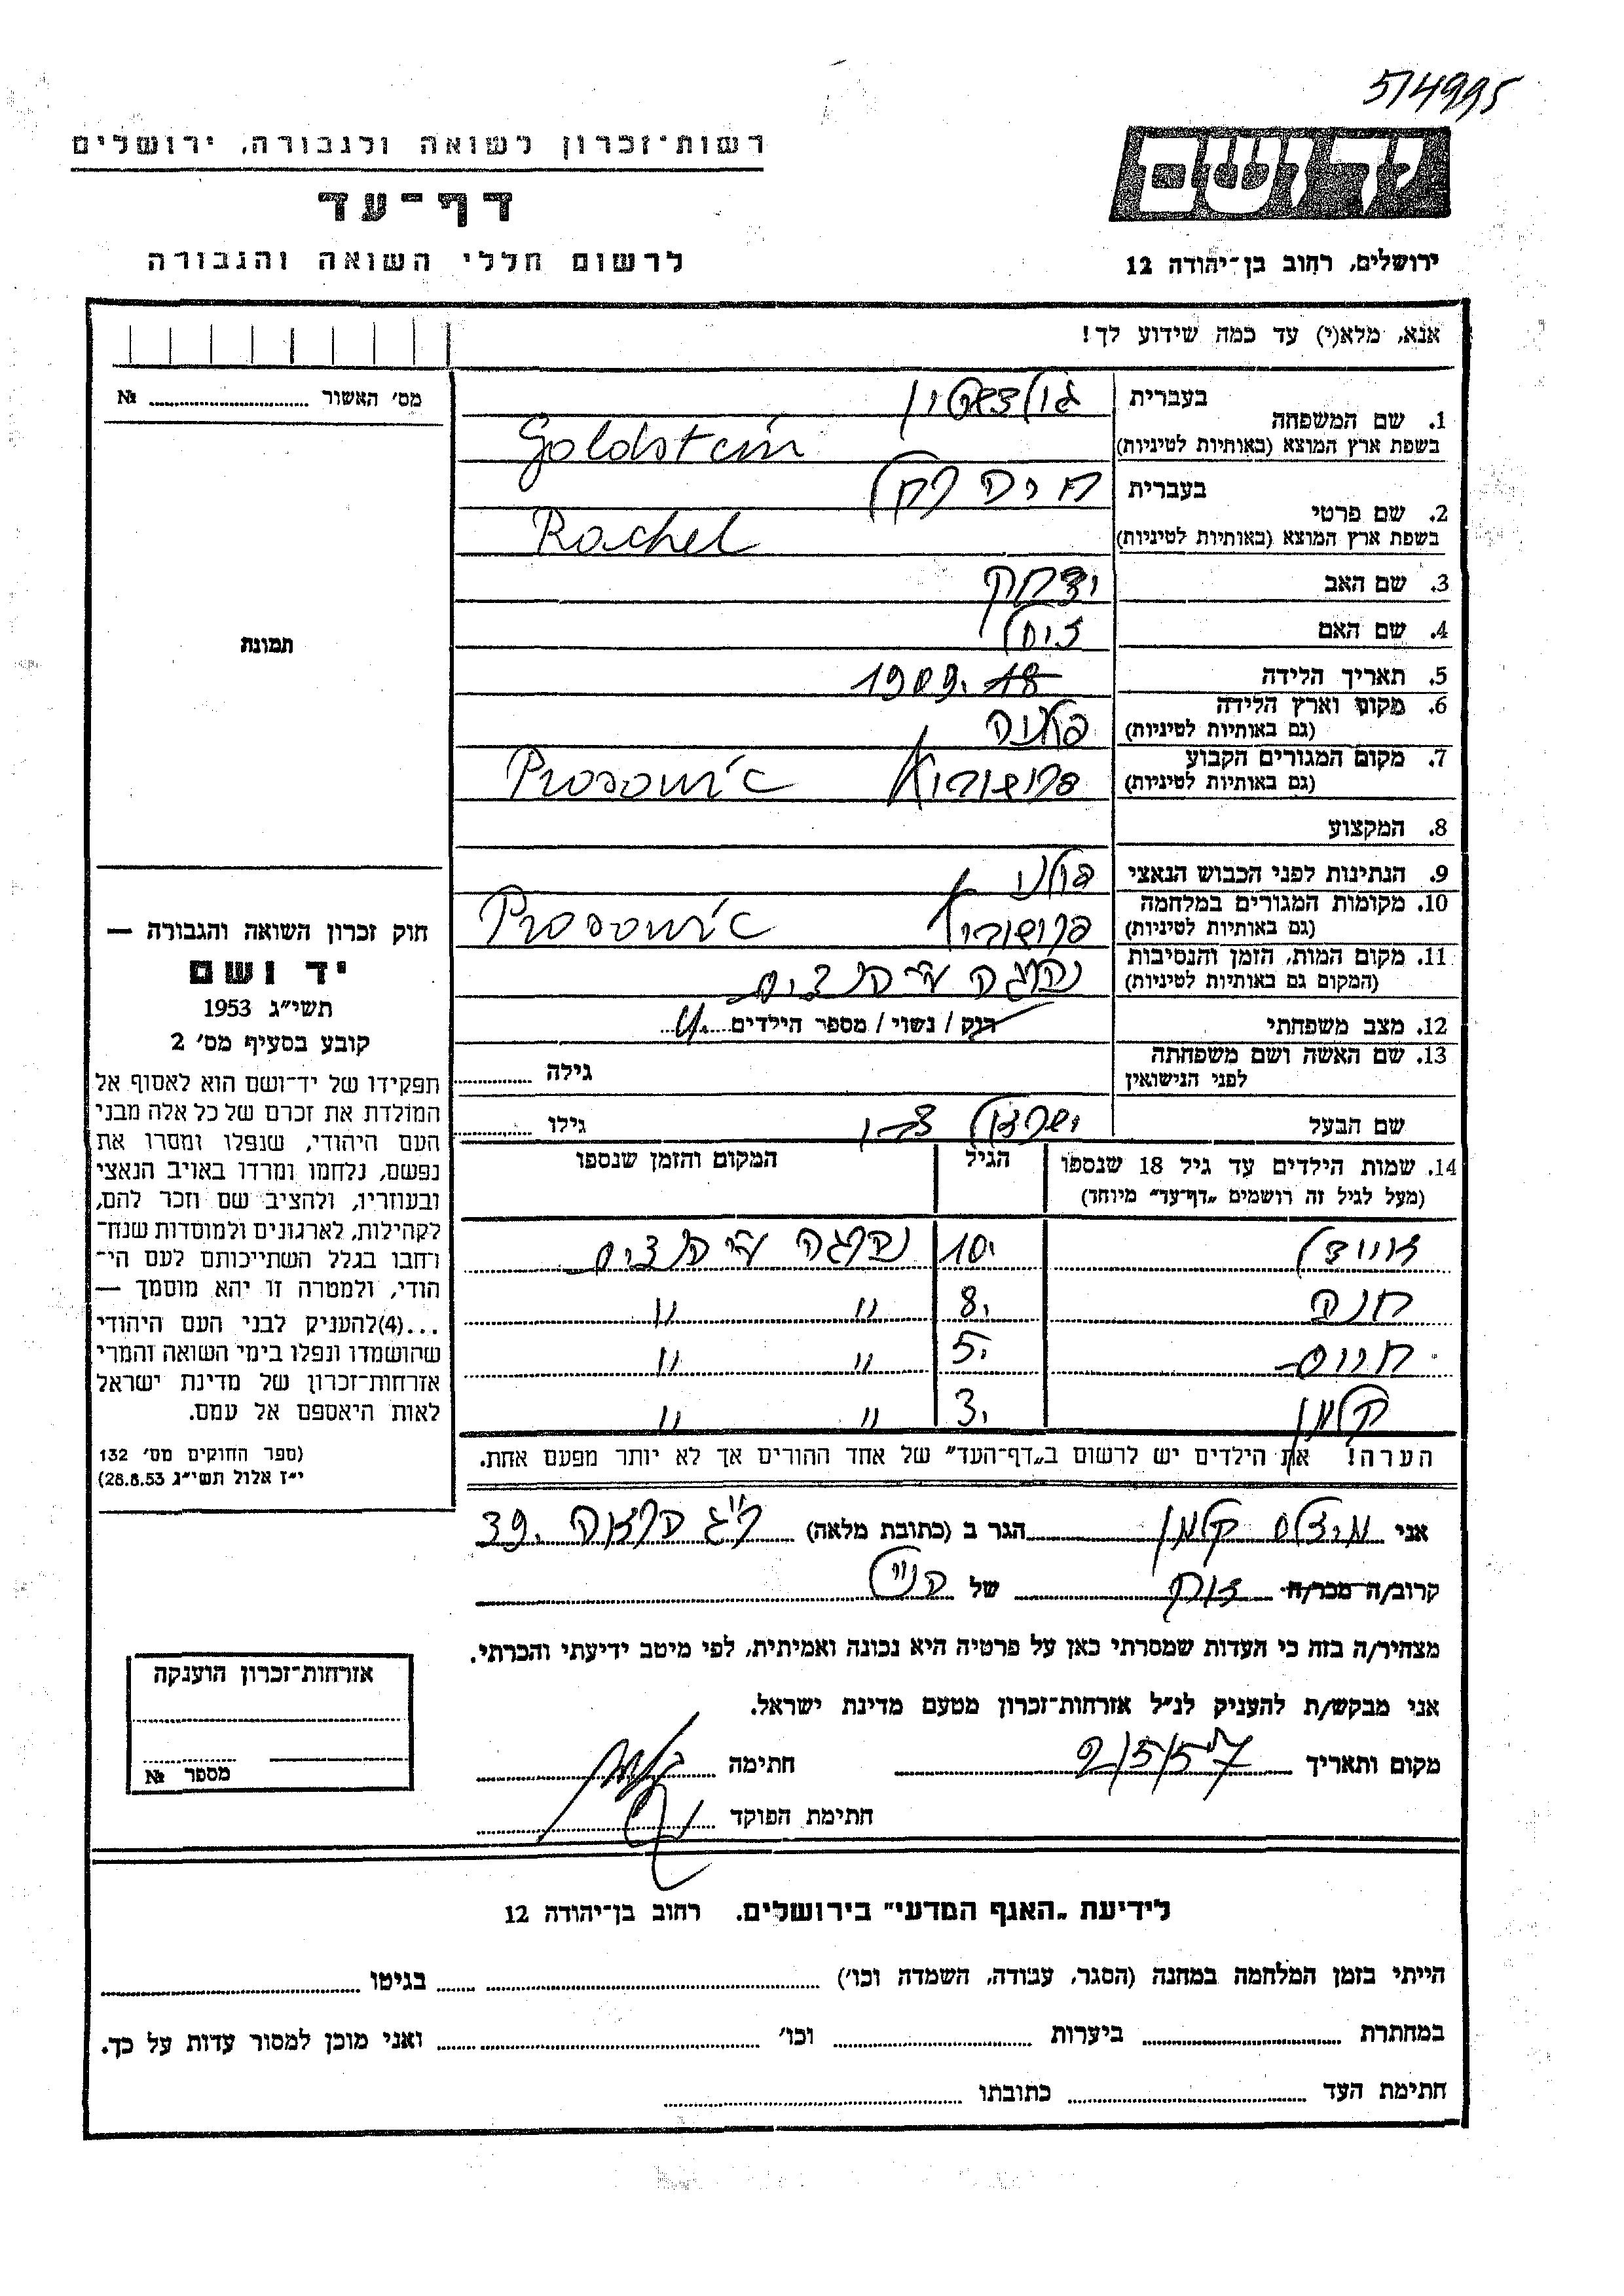 5/4995
רשות־זכרון לשואה ולגבורה, ירושלים
יד ושם
דף־עד
לרשום חללי השואה והגבורה
ירושלים, רחוב בן־יהודה 12
אנא, מלא(י) עד כמה שידוע לך!
מס׳ האשור № 
1. שם המשפחה בעברית גולדשטיין
בשפת ארץ המוצא (באותיות לטיניות) Goldstein
2. שם פרטי בעברית חיה רחל
בשפת ארץ המוצא (באותיות לטיניות) Rachel
3. שם האב יצחק
4. שם האם
5. תאריך הלידה 1909
6. מקום וארץ הלידה (גם באותיות לטיניות) פולניה
7. מקום המגורים הקבוע (גם באותיות לטיניות) Prosowic
8. המקצוע
9. הנתינות לפני הכבוש הנאצי פולני
10. מקומות המגורים במלחמה (גם באותיות לטיניות) Prosowic
11. מקום המות, הזמן והנסיבות (המקום גם באותיות לטיניות) נהרגה ע״י הנצים
12. מצב משפחתי רוק / נשוי / מספר הילדים 4
13. שם האשה ושם משפחתה לפני הנישואין גילה
שם הבעל גילו
14. שמות הילדים עד גיל 18 שנספו (מעל לגיל זה רושמים „דף־עד״ מיוחד) הגיל המקום והזמן שנספו
10. נהרגה ע״י הנצים
חנה 8. ״ ״
חיים 5. ״ ״
קלמן 3. ״ ״
הערה! את הילדים יש לרשום ב„דף־העד״ של אחד ההורים אך לא יותר מפעם אחת.
תמונת
חוק זכרון השואה והגבורה —
יד ושם
תשי״ג 1953
קובע בסעיף מס׳ 2
תפקידו של יד־ושם הוא לאסוף אל
המולדת את זכרם של כל אלה מבני
העם היהודי, שנפלו ומסרו את
נפשם, נלחמו ומרדו באויב הנאצי
ובעוזריו, ולהציב שם וזכר להם,
לקהילות, לארגונים ולמוסדות שנח־
רחבו בגלל השתייכותם לעם הי־
הודי, ולמטרה זו יהא מוסמך —
...(4)להעניק לבני העם היהודי
שהושמדו ונפלו בימי השואה והמרי
אזרחות־זכרון של מדינת ישראל
לאות היאספם אל עמם.
(ספר החוקים מס׳ 132
י״ז אלול תשי״ג 28.8.53)
אני קלמן הגר ב (כתובת מלאה)
קרוב/ה מכר/ה של הנ״ל
מצהיר/ה בזה כי העדות שמסרתי כאן על פרטיה היא נכונה ואמיתית, לפי מיטב ידיעתי והכרתי.
אני מבקש/ת להעניק לנ״ל אזרחות־זכרון מטעם מדינת ישראל.
מקום ותאריך 2/5/57 חתימה
חתימת הפוקד
אזרחות־זכרון הוענקה
מספר №
לידיעת „האגף המדעי״ בירושלים. רחוב בן־יהודה 12
הייתי בזמן המלחמה במחנה (הסגר, עבודה, השמדה וכו׳) בגיטו
במחתרת ביערות וכו׳ ואני מוכן למסור עדות על כך.
חתימת העד כתובתו